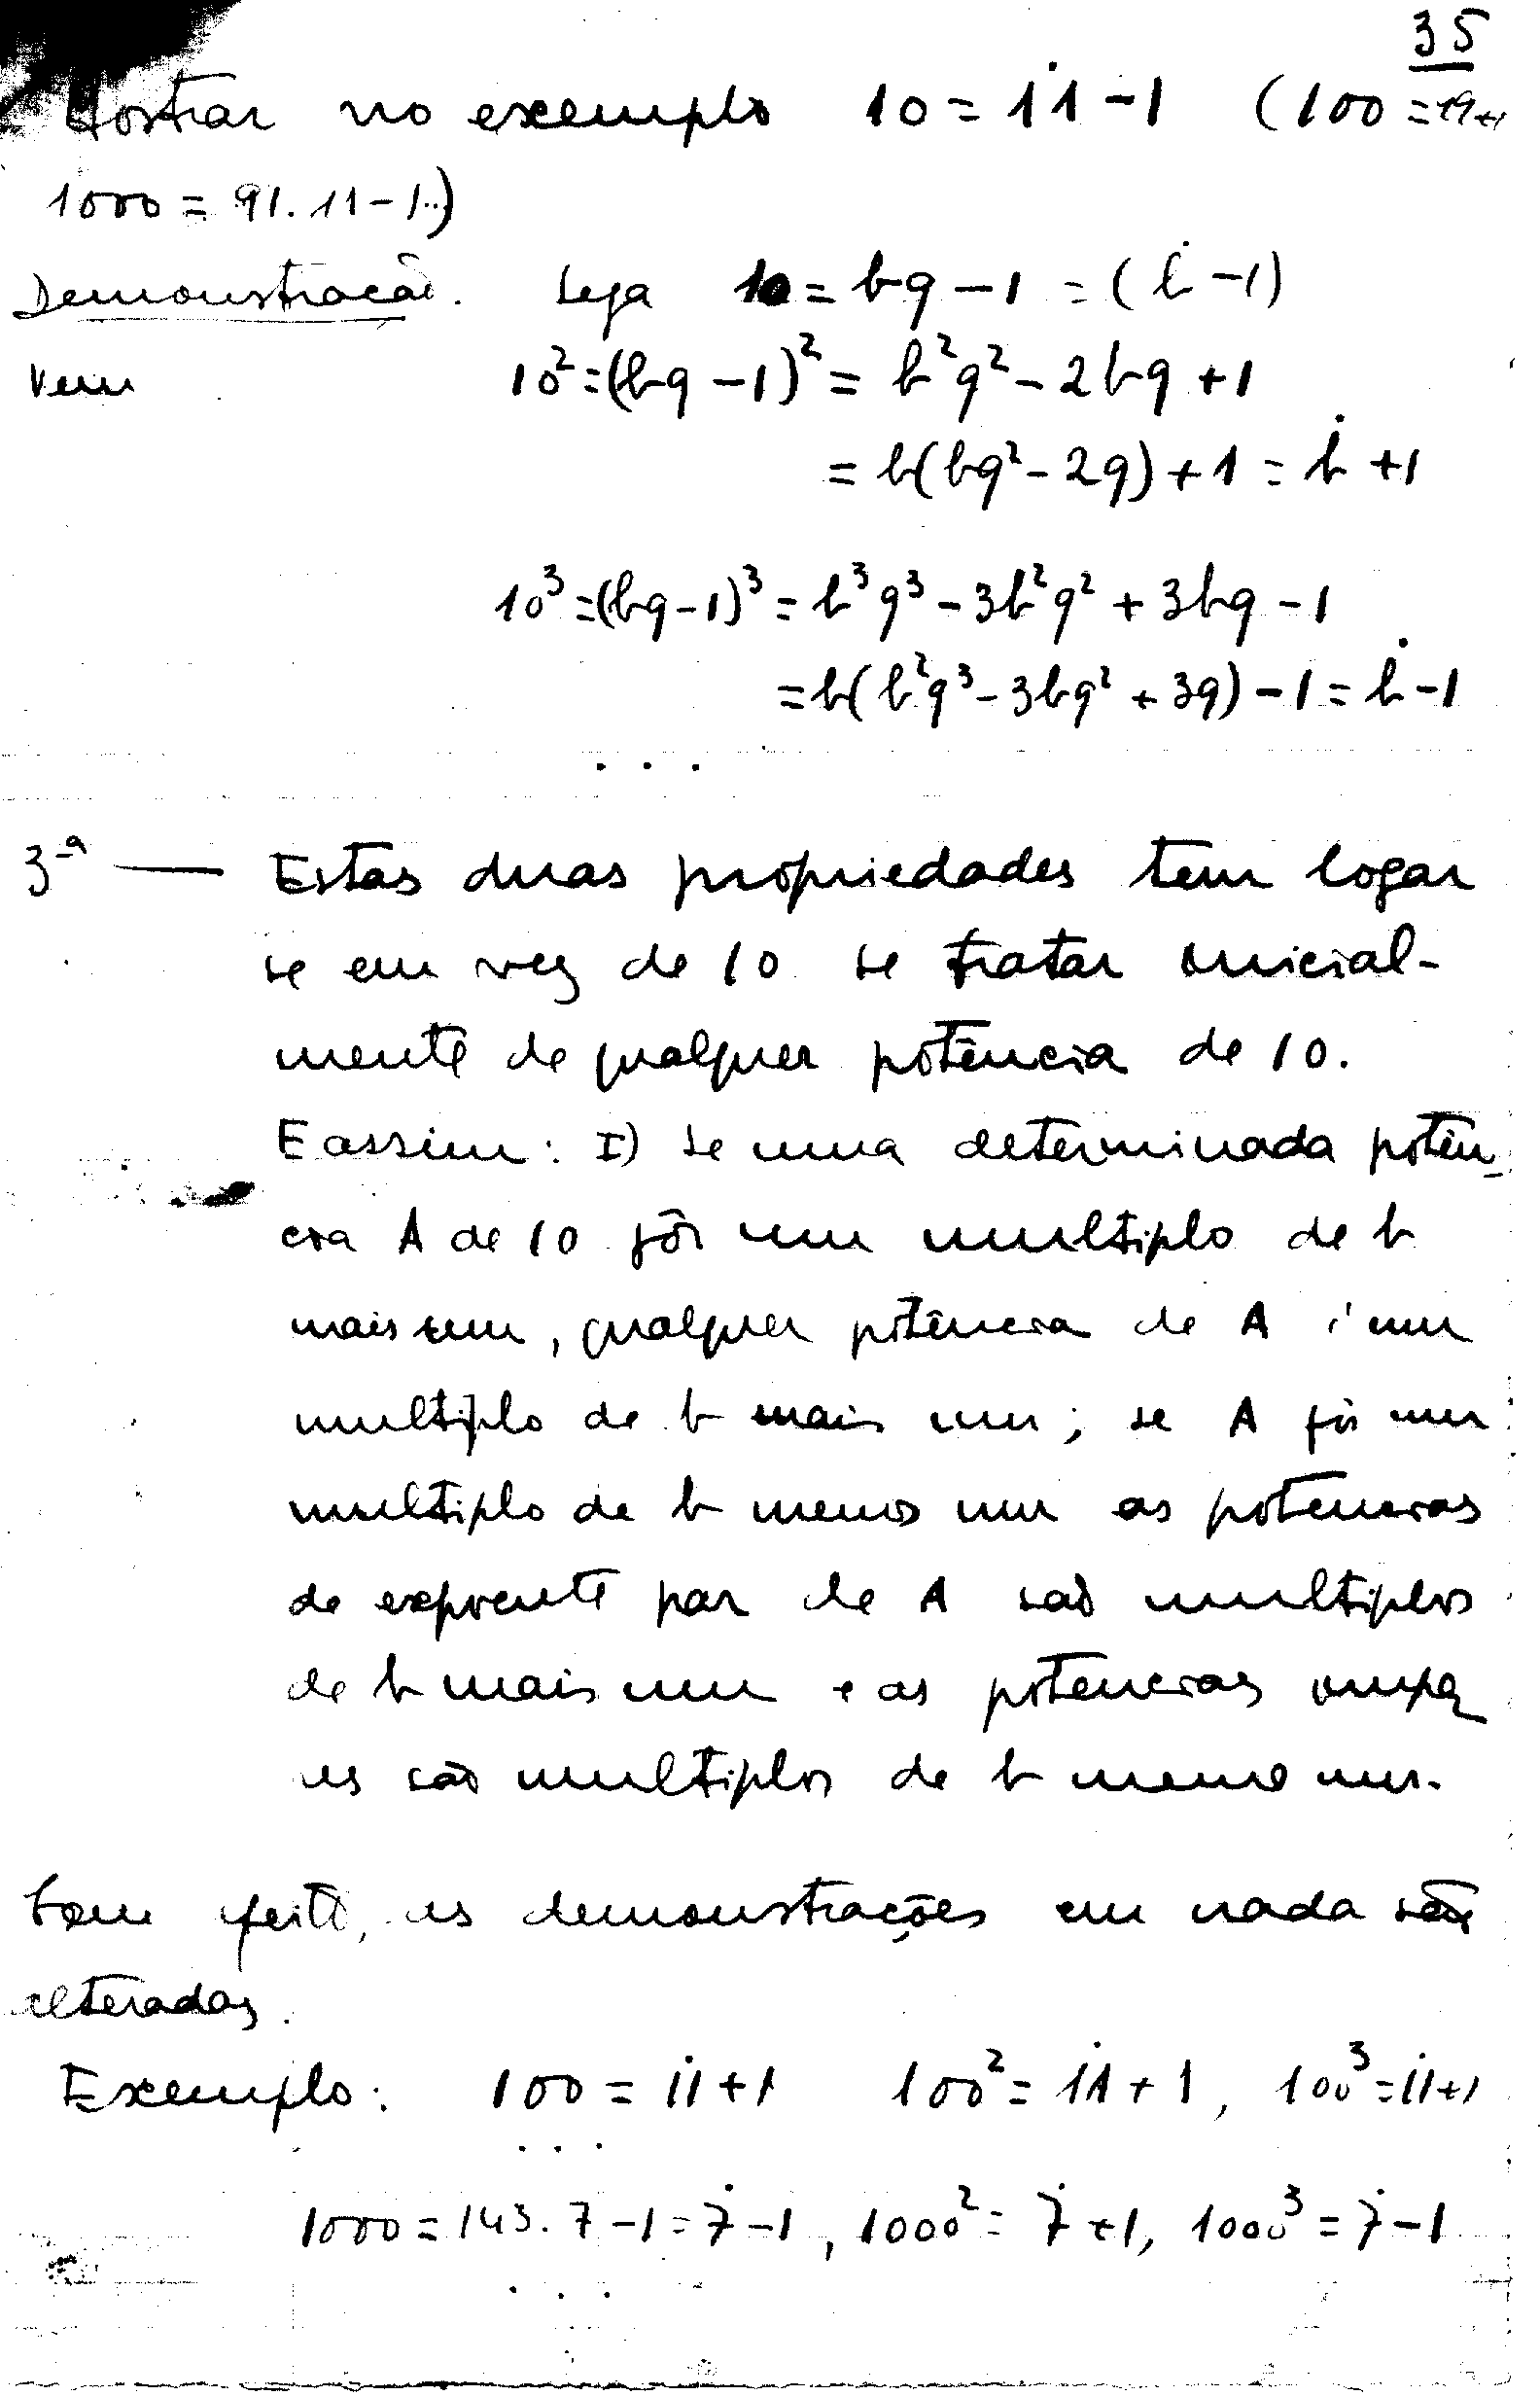 35
Mostrar no exemplo 10 = 1̇1 - 1 (100 =
1000 = 91.11 - 1...)
Demonstração. Seja 10 = bq - 1 = (ḃ - 1)
Vem 10² = (bq - 1)² = b²q² - 2bq + 1
= b(bq² - 2q) + 1 = ḃ + 1
10³ = (bq - 1)³ = b³q³ - 3b²q² + 3bq - 1
= b(b²q³ - 3bq² + 3q) - 1 = ḃ - 1
. . .
3ª — Estas duas propriedades tem logar
se em vez de 10 se tratar inicial-
mente de qualquer potência de 10.
E assim: I) se uma determinada potên-
cia A de 10 fôr um multiplo de b
mais um, qualquer potência de A é um
multiplo de b mais um; se A fôr um
multiplo de b menos um as potencias
de expoente par de A são multiplos
de b mais um e as potencias impa
res são multiplos de b menos um.
Com efeito, as demonstrações em nada são
alteradas.
Exemplo: 100 = 1̇1 + 1 100² = 1̇1 + 1, 100³ = 1̇1 + 1
. . .
1000 = 143.7 - 1 = 7̇ - 1, 1000² = 7̇ + 1, 1000³ = 7̇ - 1
. . .